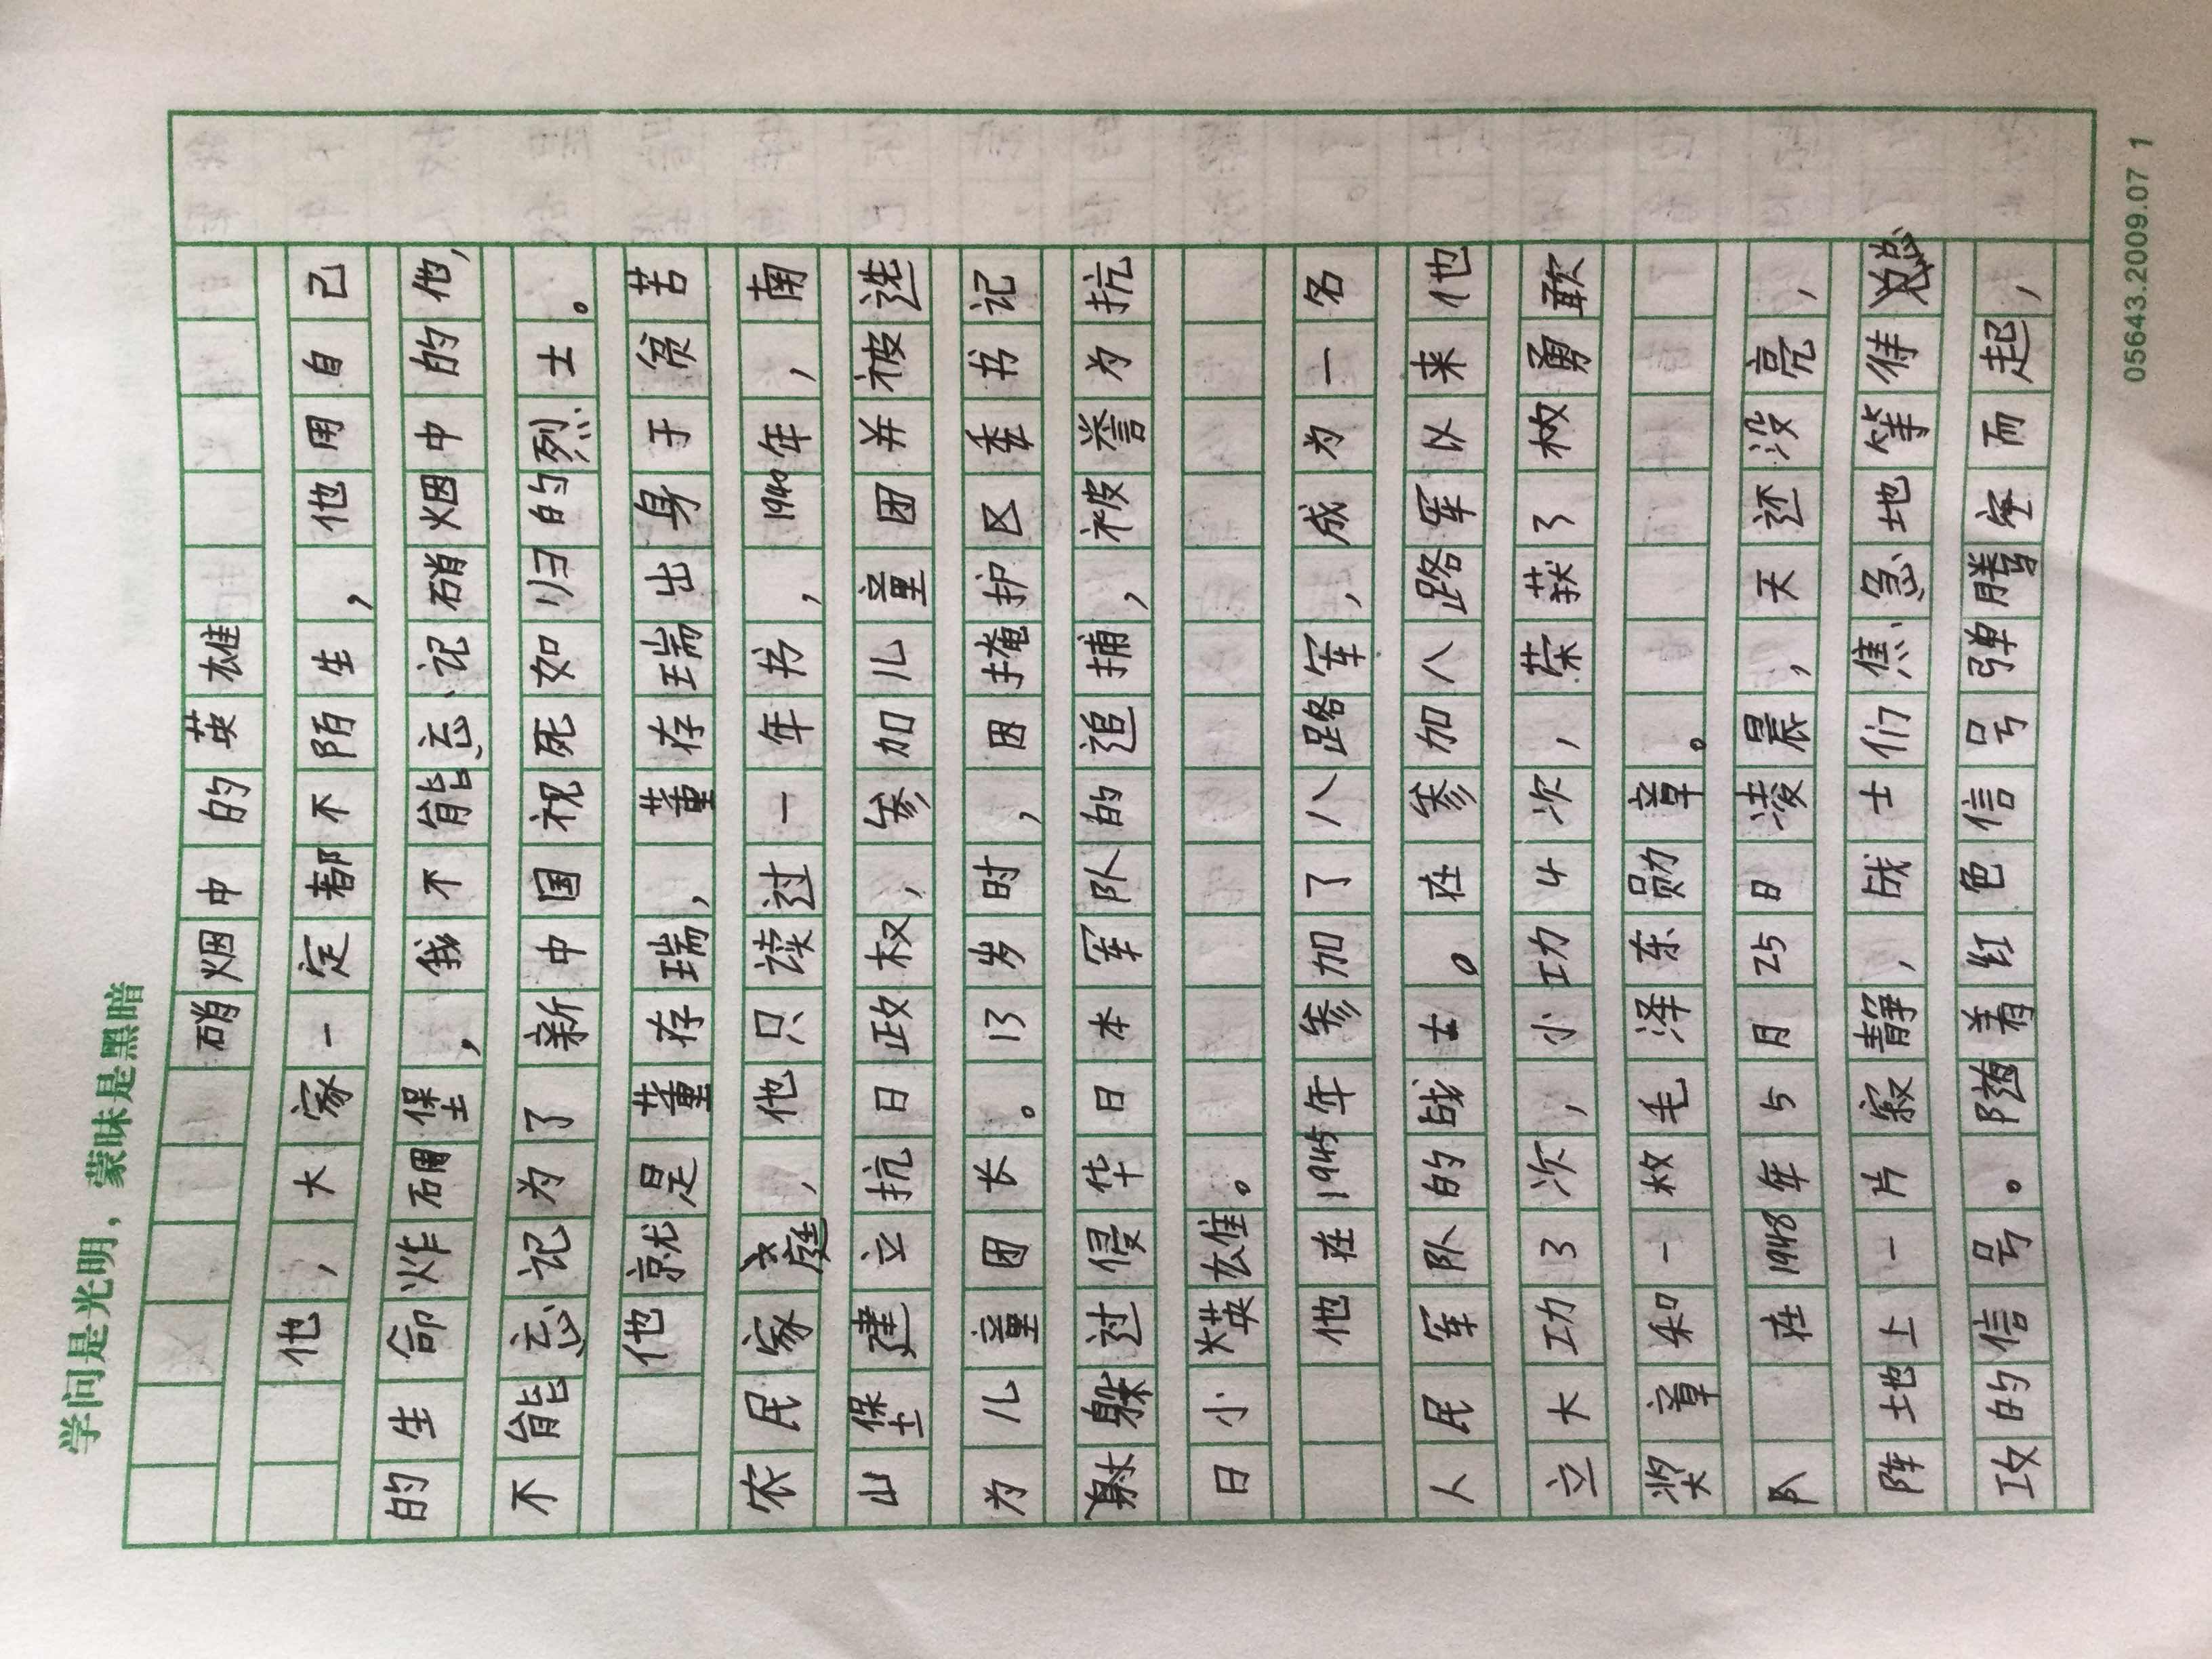 学问是光明，蒙昧是黑暗
硝烟中的英雄
他，大家一定都不陌生，他用自己
的生命炸碉堡，我不能忘记硝烟中的他，
不能忘记为了新中国视死如归的烈士。
他就是董存瑞，董存瑞出身于贫苦
农民家庭，他只读过一年书，1940年，南
山堡建立抗日政权，参加儿童团并被选
为儿童团长。13岁时，因掩护区委书记
躲过侵华日本军队的追捕，被誉为抗
日小英雄。
他在1945年参加了八路军，成为一名
人民军队的战士。在参加八路军以来他
立大功3次，小功4次，荣获了枚勇敢
奖章和一枚毛泽东勋章。
队在1948年5月25日凌晨，天还没亮，
阵地上一片寂静，战士们焦急地等待总
攻的信号。随着红色信号弹腾空而起，
05643.2009.07 1